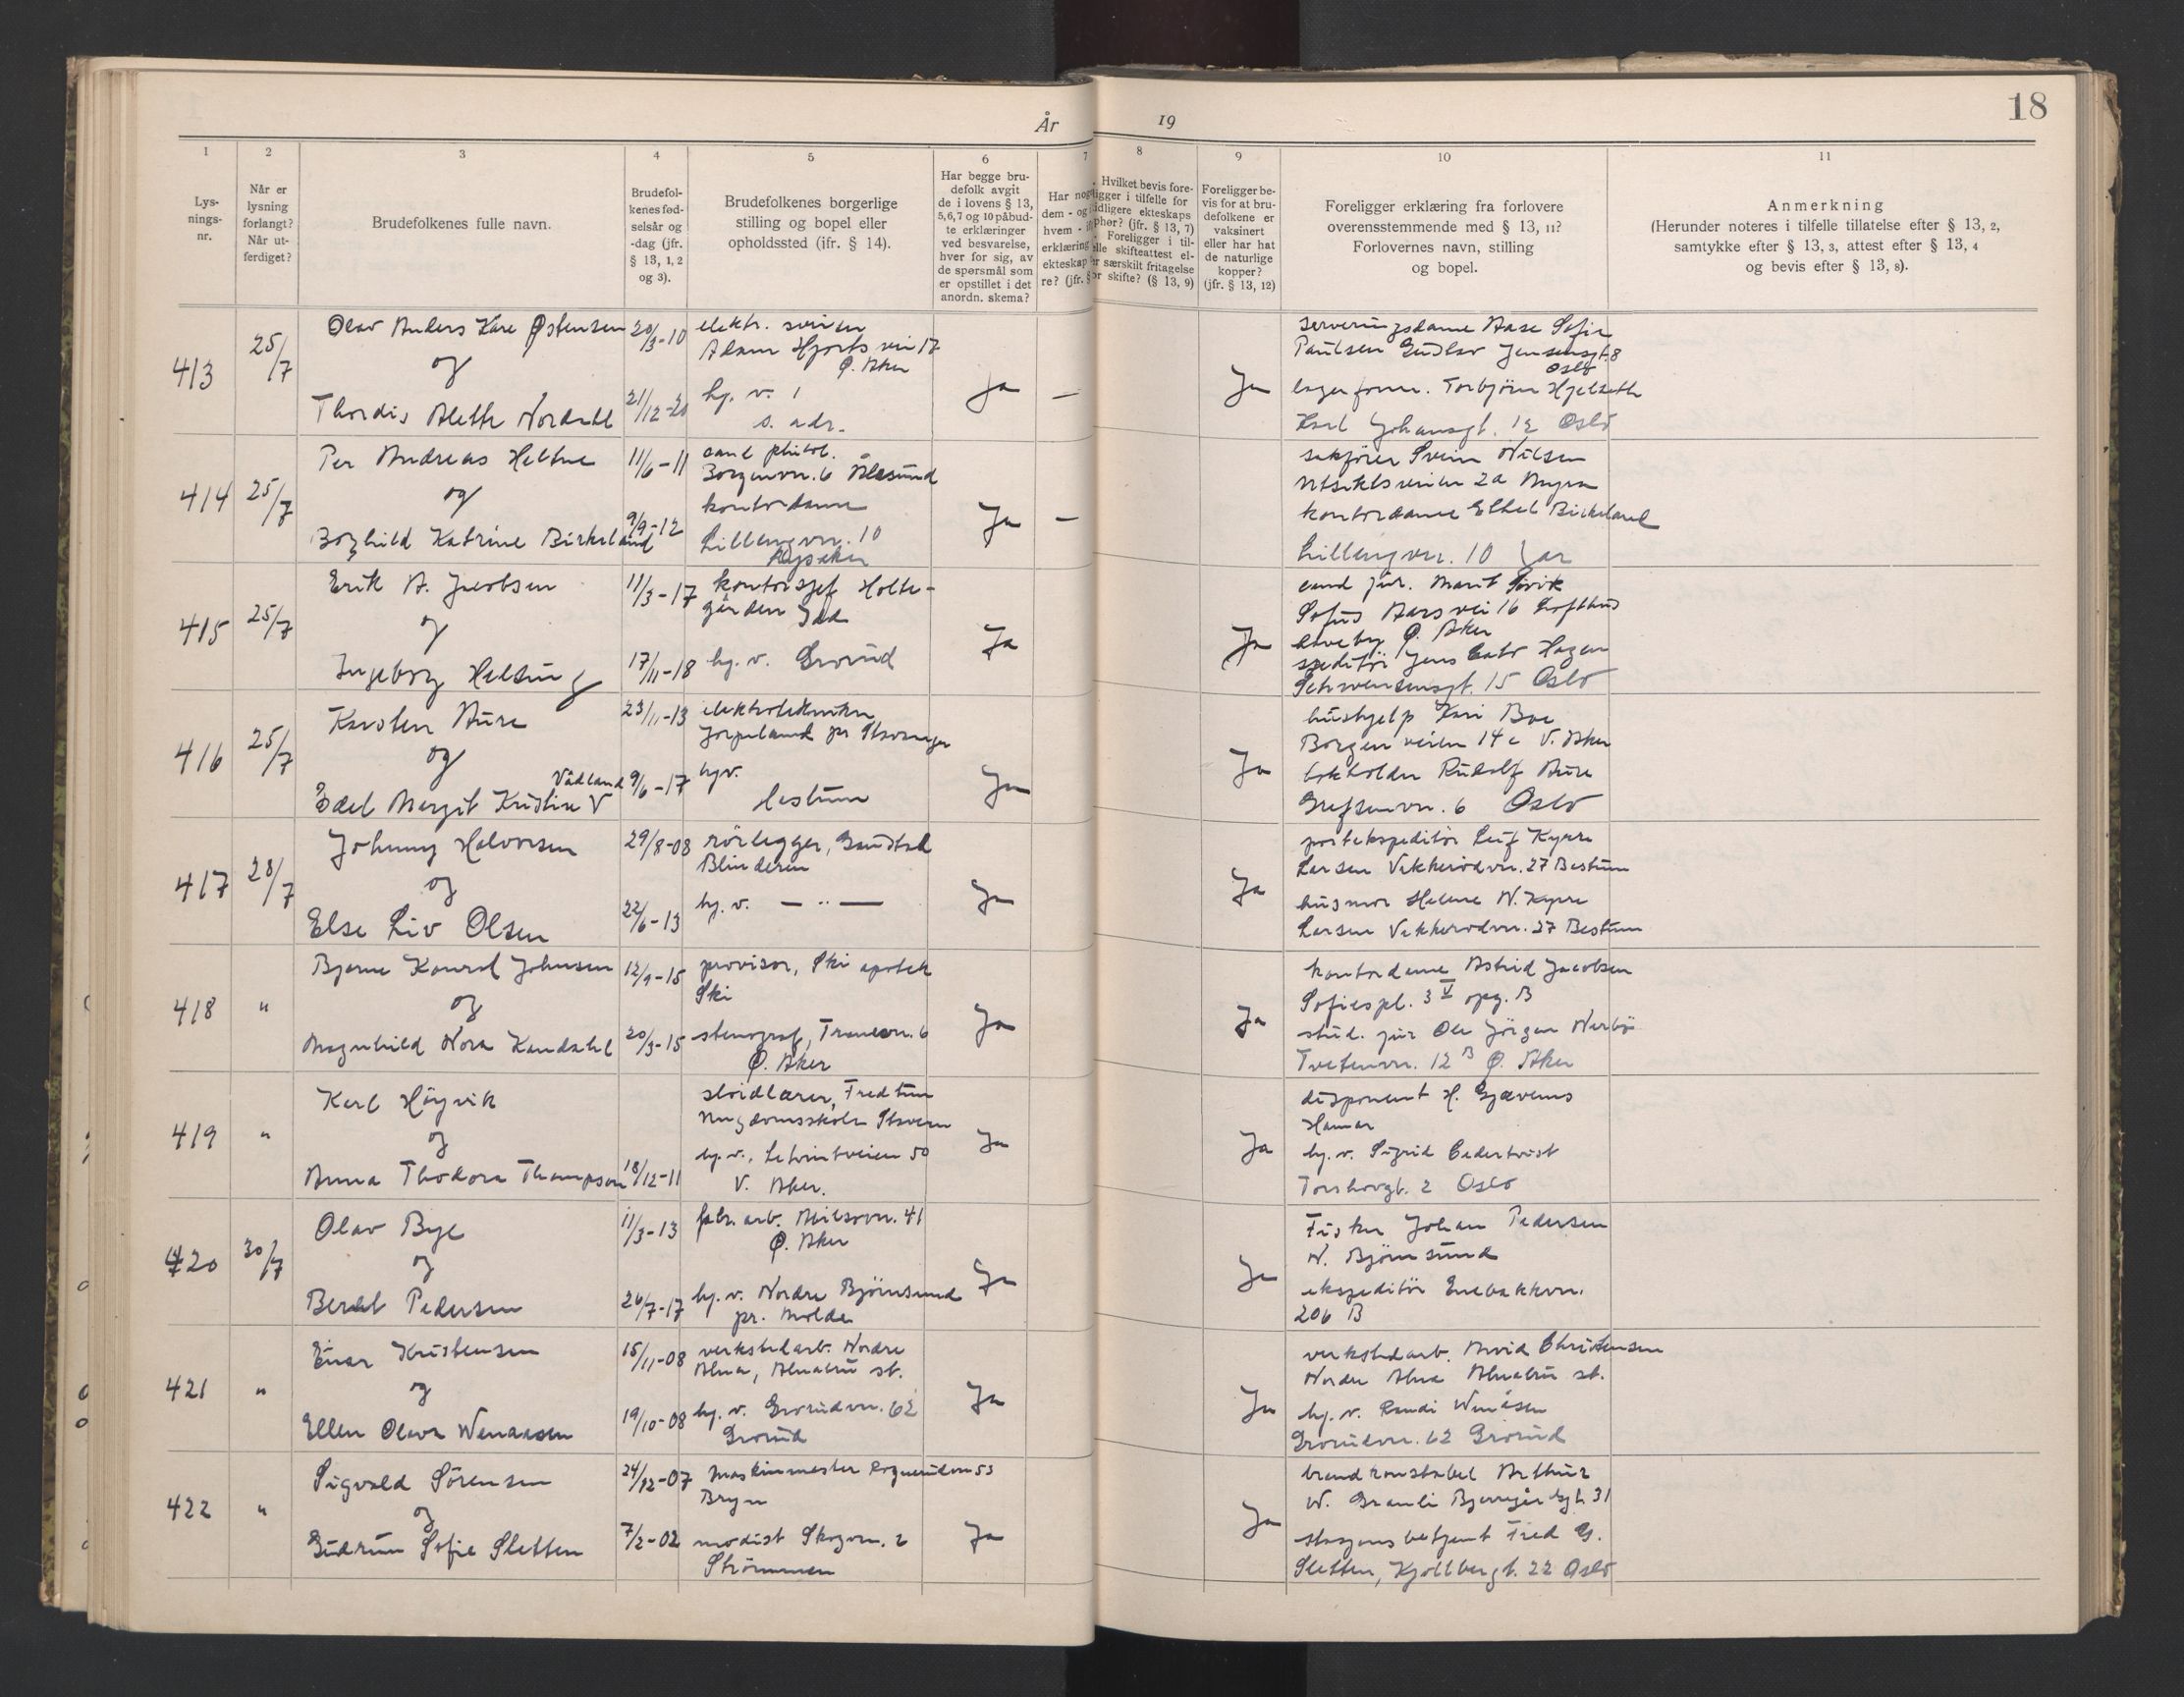 År 19
18
1
Lys-
nings-
nr.
2
Når er
lysning
forlangt?
Når ut-
ferdiget?
3
Brudefolkenes fulle navn.
4
Brudefol-
kenes fød-
selsår og
-dag (jfr.
§ 13, 1, 2
og 3).
5
Brudefolkenes borgerlige
stilling og bopel eller
opholdssted (ifr. § 14).
6
Har begge bru-
defolk avgit
de i lovens § 13,
5,6,7 og 10 påbud-
te erklæringer
ved besvarelse,
hver for sig, av
de spørsmål som
er opstillet i det
anordn. skema?
7
Har nog
dem - og
hvem -
erklæring
ekteskap
re? (jfr. §
8
Hvilket bevis fore-
ligger i tilfelle for
tidligere ekteskaps
ophør? (jfr. § 13, 7)
Foreligger i til-
felle skifteattest el-
ler særskilt fritagelse
for skifte? (§ 13, 9)
9
Foreligger be-
vis for at bru-
defolkene er
vaksinert
eller har hat
de naturlige
kopper?
(jfr. § 13, 12)
10
Foreligger erklæring fra forlovere
overensstemmende med § 13, 11?
Forlovernes navn, stilling
og bopel.
11
Anmerkning
(Herunder noteres i tilfelle tillatelse efter § 13, 2,
samtykke efter § 13, 3, attest efter § 13, 4
og bevis efter § 13, 8).
413
25/7
Olav Anders Kåre Østensen
og
Thordis Alette Nordahl
20/3-10
21/12-20
elektr. sveiser
Adam Hjorts vei 17
Ø. Aker
hj. v.
s. adr.
Ja
—
Ja
serveringsdame Aase Sofie
Paulsen Gustav Jensensgt. 8
Oslo
lagerform. Torbjörn Hjelseth
Karl Johansgt. 12 Oslo
414
25/7
Per Andreas Heltne
og
Borghild Katrine Birkeland
11/6-11
9/9-12
cand philol.
Borgenvn. 6 Ålesund
kontordame
Lillengvn. 10
Ja
—
sakfører Svein Nilsen
Utsiktsveien 2a
kontordame Ethel Birkeland
Lillengvn. 10
415
25/7
Erik A. Jacobsen
og
Ingeborg Helsing
11/3-17
17/11-18
kontorsjef Holte-
gården
hj. v. Grorud
Ja
Ja
cand jur. Marit
Sofus Aars vei 16 Lofthus
haveby Ø. Aker
speditör Jens Hagen
Schwensensgt. 15 Oslo
416
25/7
Karsten Aure
og
Vådland
Edel Margit Kristine V
23/11-13
9/6-17
elektrotekniker
Jørpeland pr Stavanger
hjv.
Ja
Ja
hushjelp Kari Boe
Borgenveien 14c V. Aker
bokholder Rudolf Aure
Grefsenvn. 6 Oslo
417
28/7
Johnny Halvorsen
og
Else Liv Olsen
29/8-08
22/6-13
rörlegger, Gaustad
Blindern
hj. v. — " —
Ja
Ja
postekspeditör Leif Kyrre
Larsen Vækkerödvn. 27 Bestum
husmor Helene N. Kyrre
Larsen Vækkerödvn. 27 Bestum
418
"
Bjarne Konrad Johnsen
og
Magnhild Nora Kandahl
12/9-15
20/3-15
provisor, Ski apotek
Ski
stenograf, Tranevn. 6
Ø. Aker
Ja
Ja
kontordame Astrid Jacobsen
Sofiespl. 3 V opg. B
stud. jur Ole Jörgen
Tvetenvn. 12 B Ø. Aker
419
"
Karl Höyvik
og
Anna Thodora Thompson
18/12-11
sløidlærer, Fredtun
ungdomsskole Stavern
hj. v., 50
V. Aker.
Ja
Ja
disponent H. Gjævenes
Hamar
hj. v. Sigrid Cederkvist
Torshovgt. 2 Oslo
420
30/7
Olav Bye
og
Pedersen
11/3-13
26/7-17
fabr. arb. Nilsovn. 41
Ø. Aker
hj. v. Nordre Björnsund
pr. Molde
Ja
Ja
Fisker Johan Pedersen
N. Björnsund
ekspeditör Enebakkvn.
206 B
421
"
Einar Kristensen
og
Ellen Olava Wenaasen
15/11-08
19/10-08
verkstedarb. Nordre
Alna, Alnabru st.
hj. v. Grorudvn. 62
Grorud
Ja
Ja
verkstedarb. Arvid Christensen
Nordre Alna Alnabru st.
hj. v. Randi Wenåsen
Grorudvn. 62 Grorud
422
"
Sigvald Sörensen
og
Gudrun Sofie Sletten
24/12-07
7/2-02
Maskinmester Rognerudvn 53
Bryn
modist Skogvn. 2
Strömmen
Ja
Ja
brandkonstabel Arthur
W. Granli Bjerregårdsgt. 31
stasjonsbetjent Fred G.
Sletten, Kjölberggt. 22 Oslo